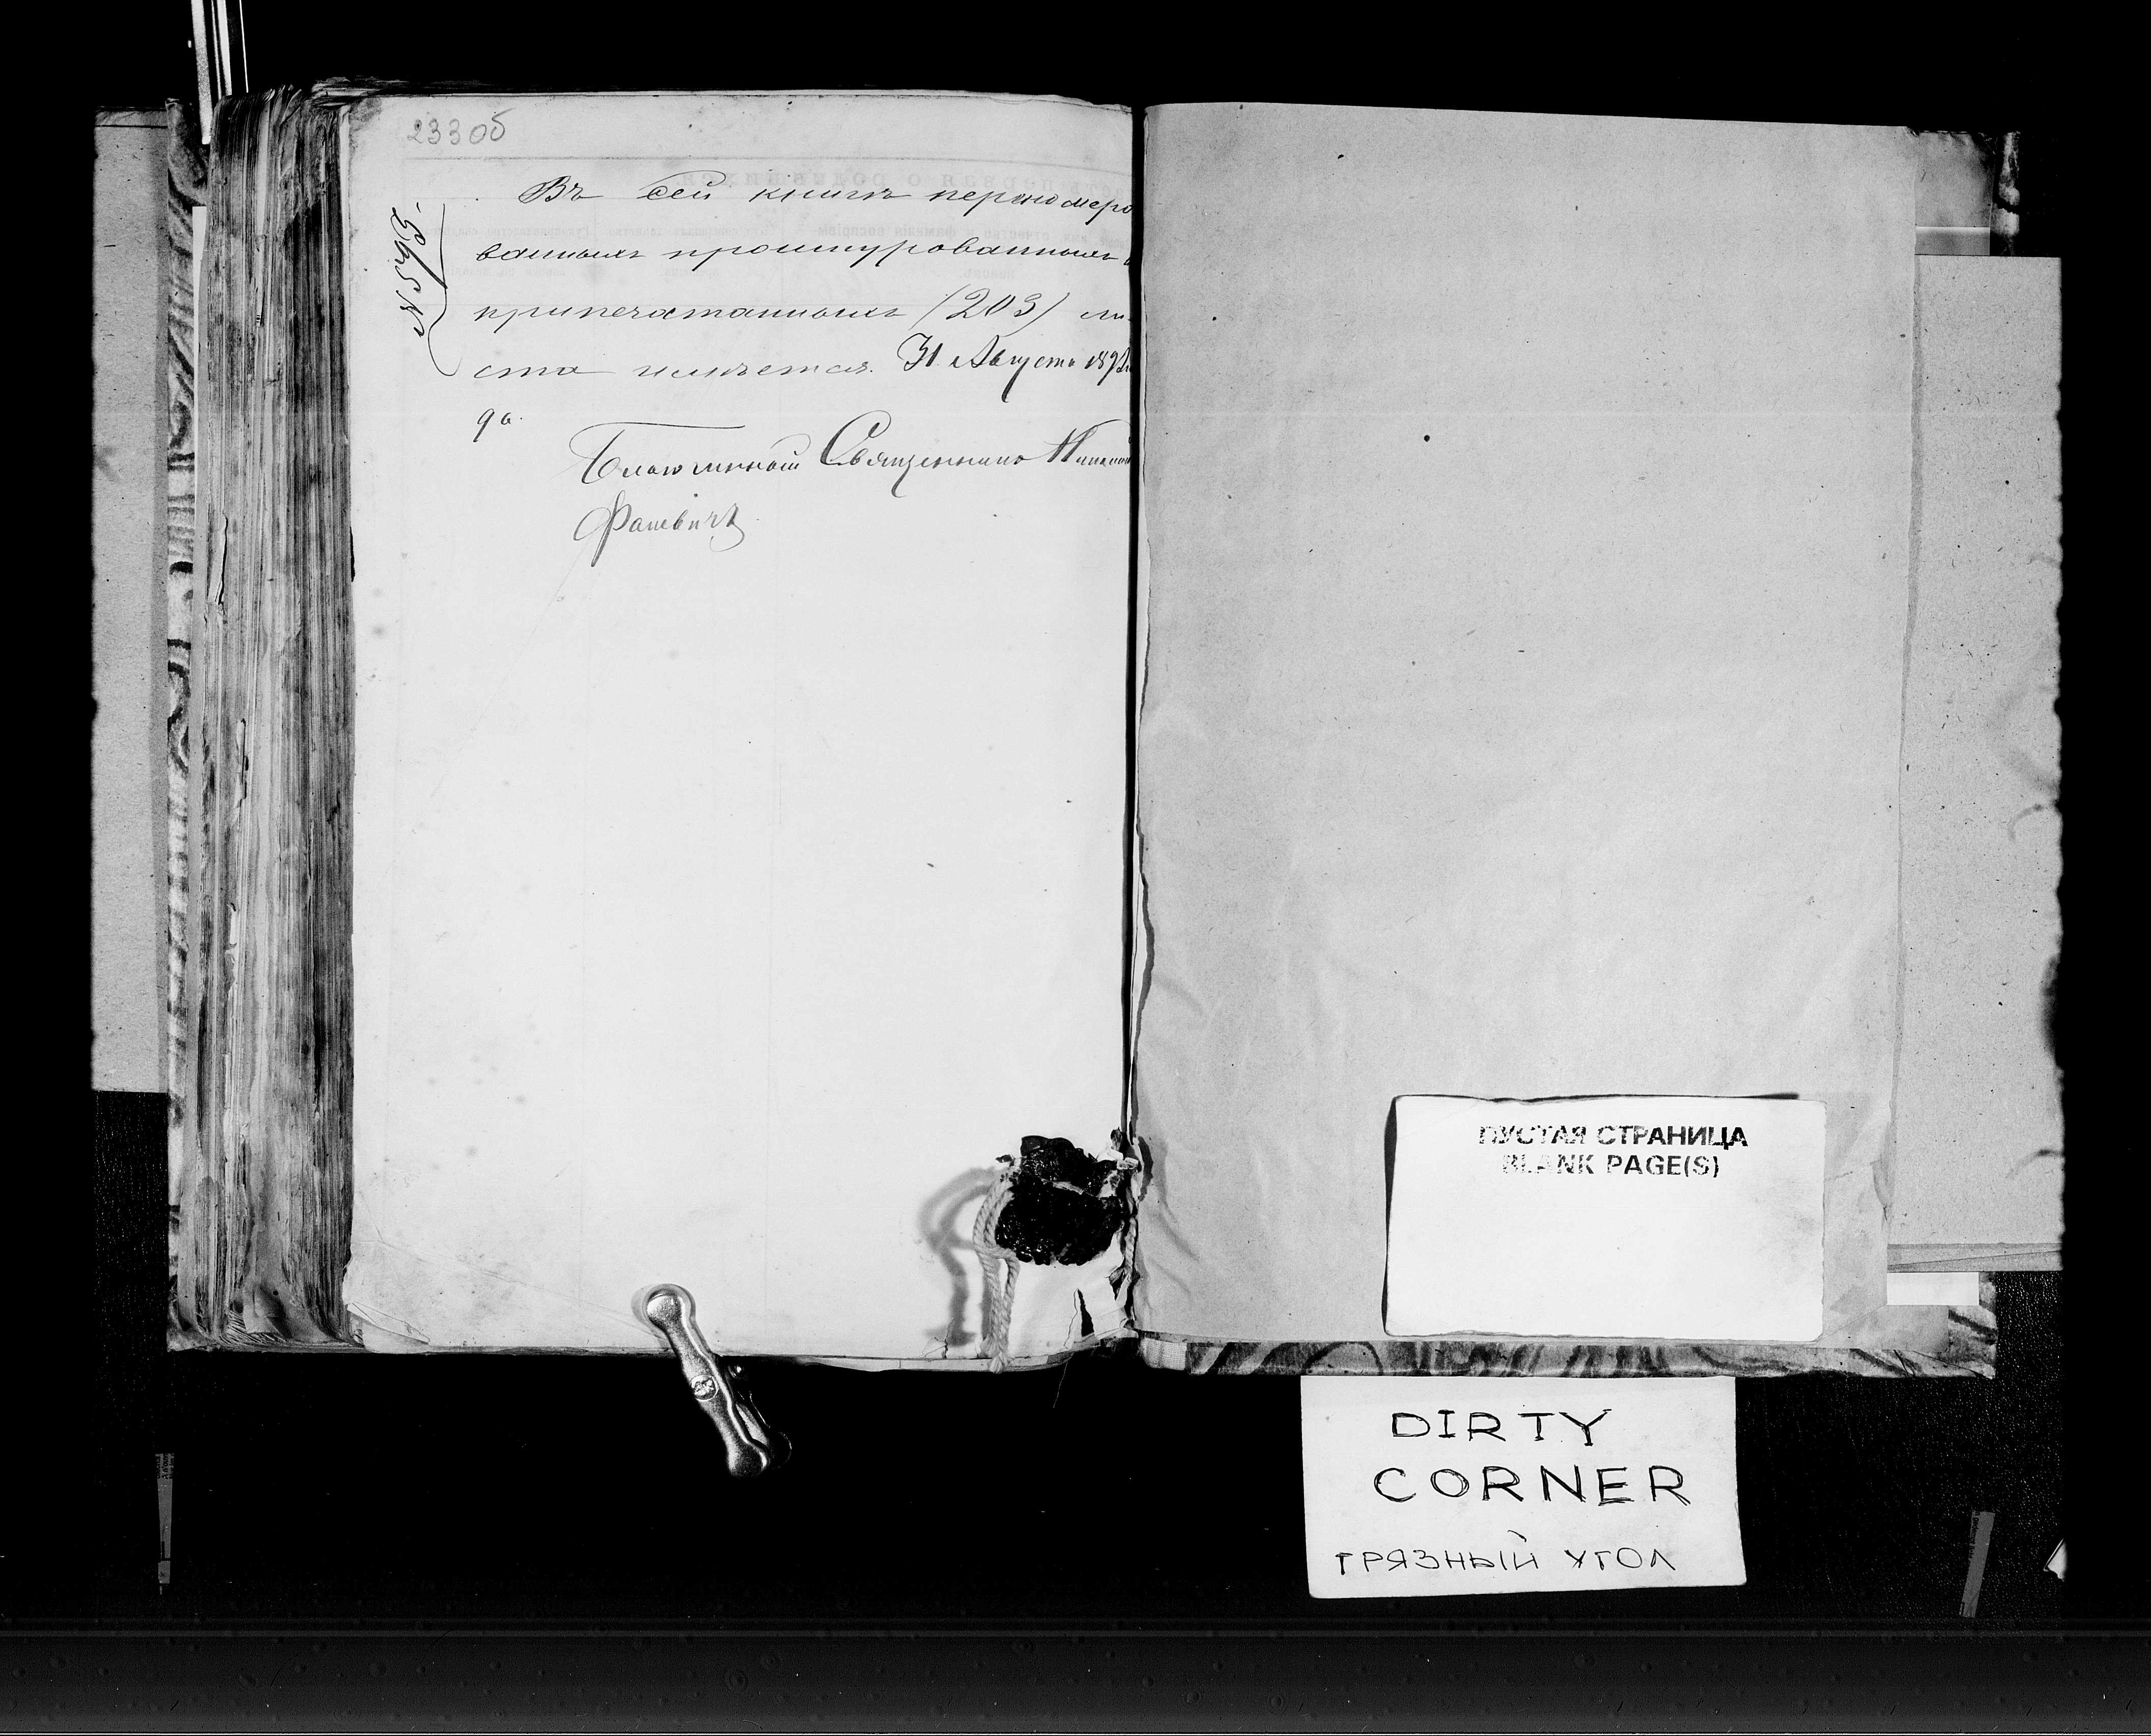 233об
№ 595.
Въ сей книгѣ перономеро
ванныхъ прошнурованныхъ
припечатанныхъ (203) ли-
ста имѣется. 31 Августа 189
да.
Благочинный Священникъ
Фалевичъ
ПУСТАЯ СТРАНИЦА
BLANK PAGE(S)
DIRTY
CORNER
ГРЯЗНЫЙ УГОЛ